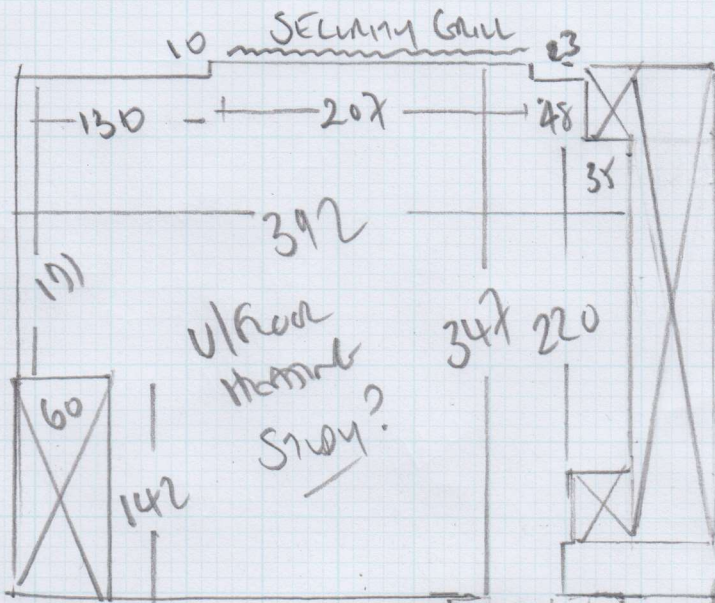 SECURITY GRILL
10
23
130
207
48
35
392
U/FLOOR
HEATING
STUDY?
347
220
60
142